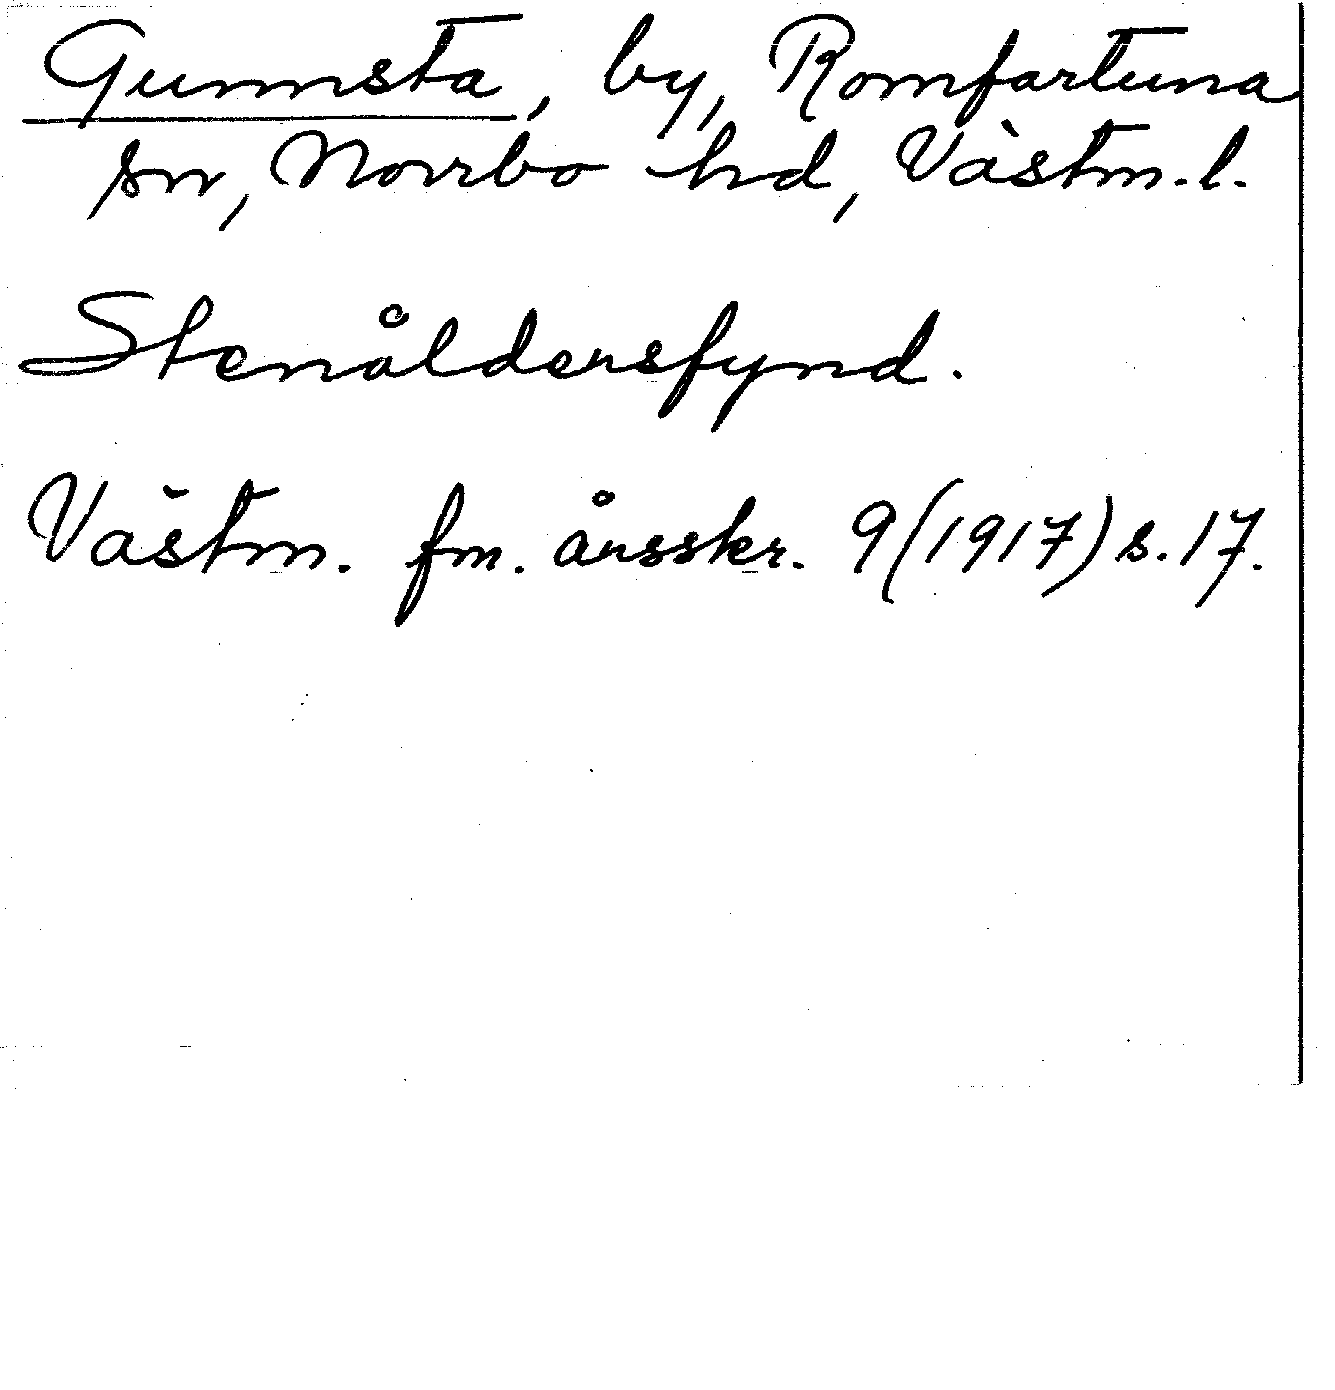 Gunnsta, by, Romfartuna
sn, Norrbo hd, Västm. l.
Stenåldersfynd.
Västm. fm. årsskr. 9 (1917) s. 17.